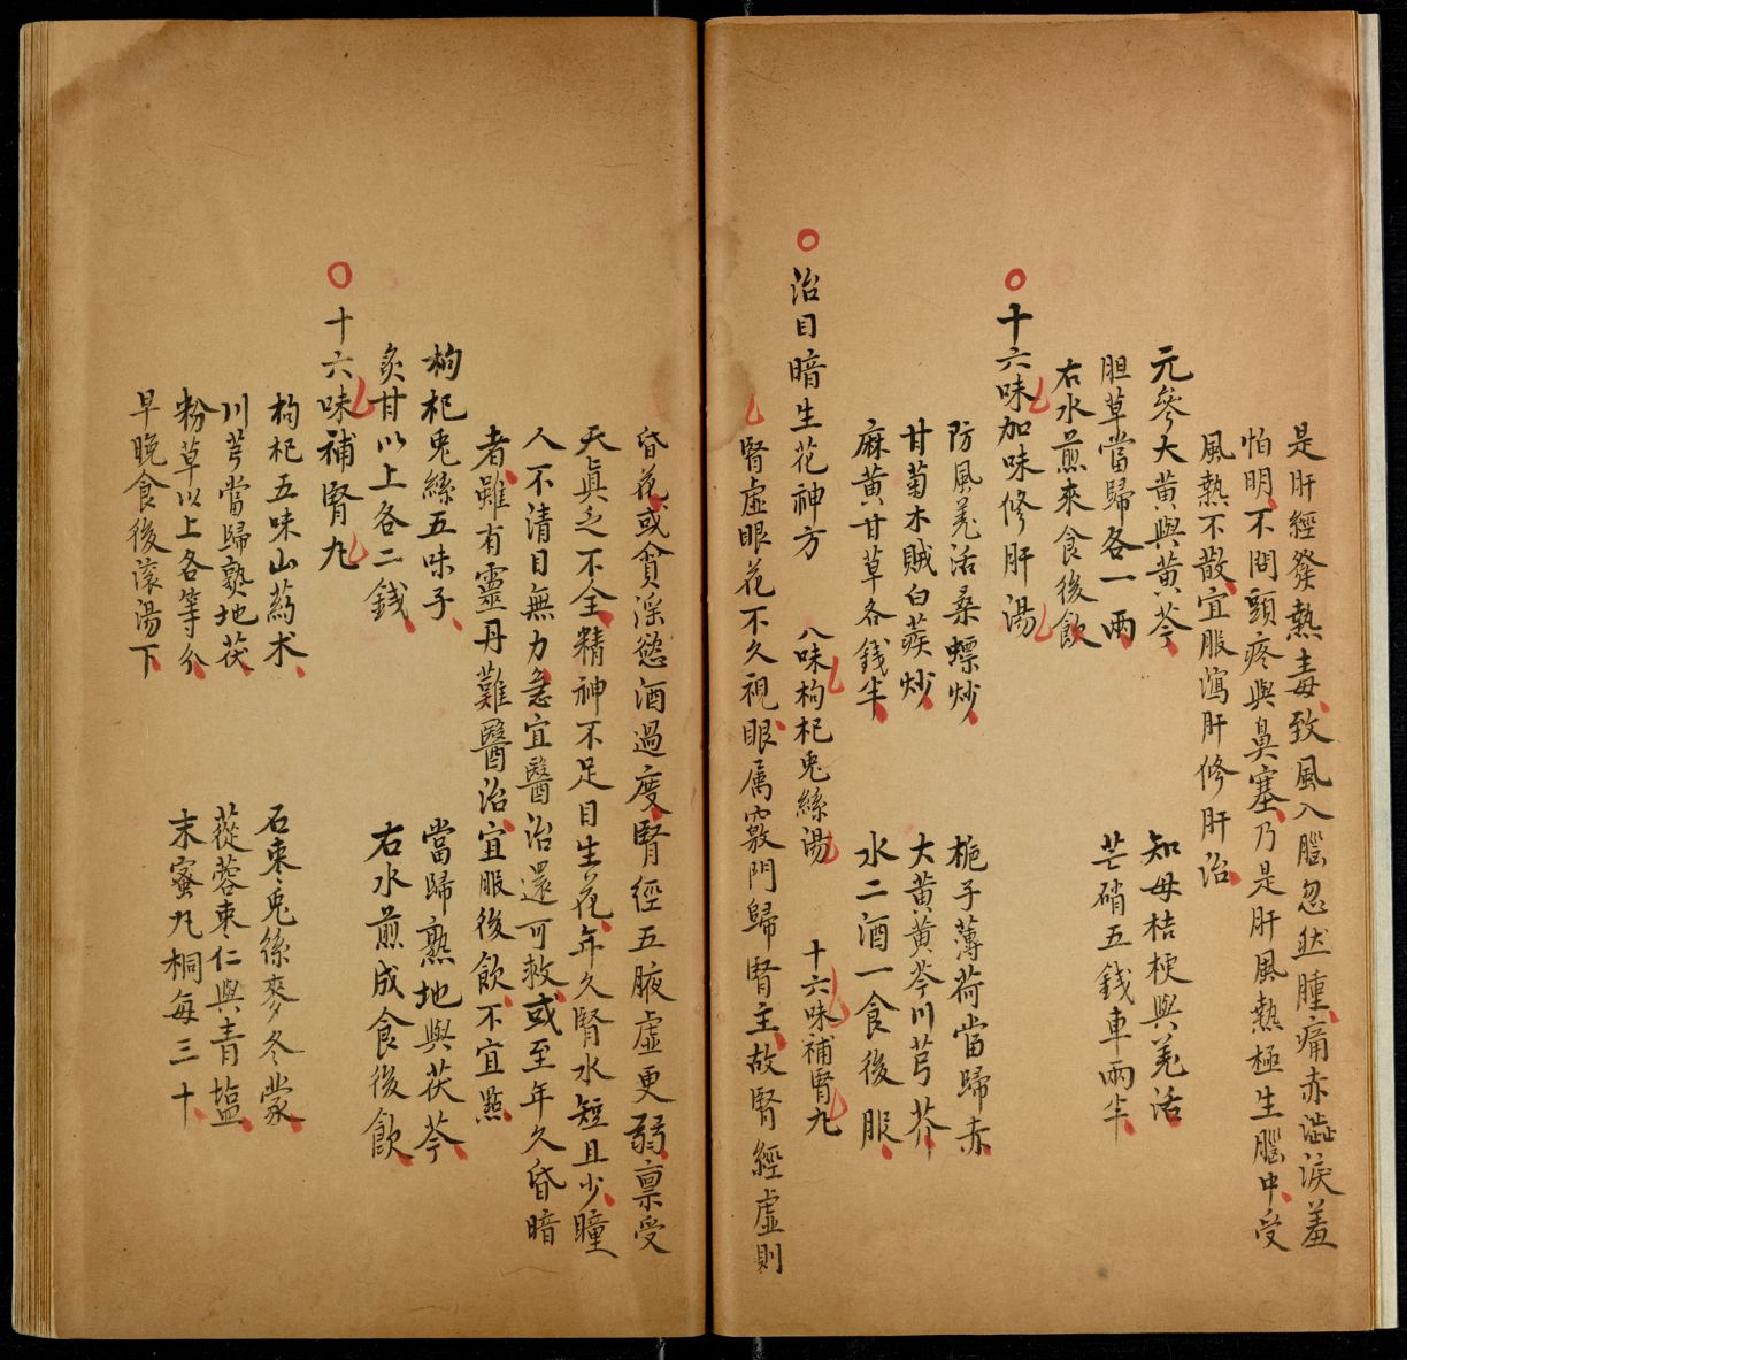 是肝經發熱毒致風入腦忽然腫痛赤澁淚羞
怕明不問頭疼與鼻塞乃是肝風熱極生腦中受
風熱不散宜服瀉肝修肝治
元參大黃與黃芩 知母桔梗與羗活
胆草當歸各一兩 芒硝五錢車兩半
右水煎來食後飲
十六味加味修肝湯
防風羗活桑螵炒 梔子薄荷當歸赤
甘菊木賊白蒺炒 大黃黃芩川芎芥
麻黃甘草各錢半 水二酒一食後服
治目暗生花神方 八味枸杞兎絲湯 十六味補腎九
腎虛眼花不久視眼属竅門歸腎主故腎經虛則
昏花或貪淫慾酒過度腎經五腋虛更弱禀受
天眞之不全精神不足目生花年久腎水短且少瞳
人不清目無力急宜醫治還可救或至年久昏暗
者雖有靈丹難醫治宜服後飲不宜㸃
枸杞兎絲五味子 當歸熟地與茯苓
炙甘以上各二錢 右水煎成食後飲
十六味補腎九
枸杞五味山药术 石枣兎絲麥冬蒙
川芎當歸熟地茯 蓯蓉枣仁與青塩
粉草以上各等分 末蜜九桐每三十
早晚食後滚湯下